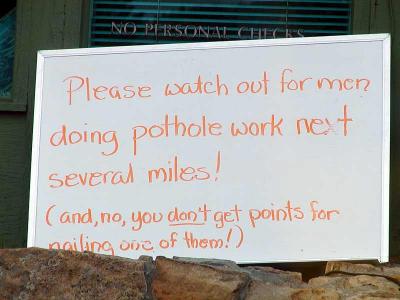 NO PERSONAL CHECKS
Please watch out for men
doing pothole work next
several miles!
(and, no, you don't get points for
nailing one of them!)